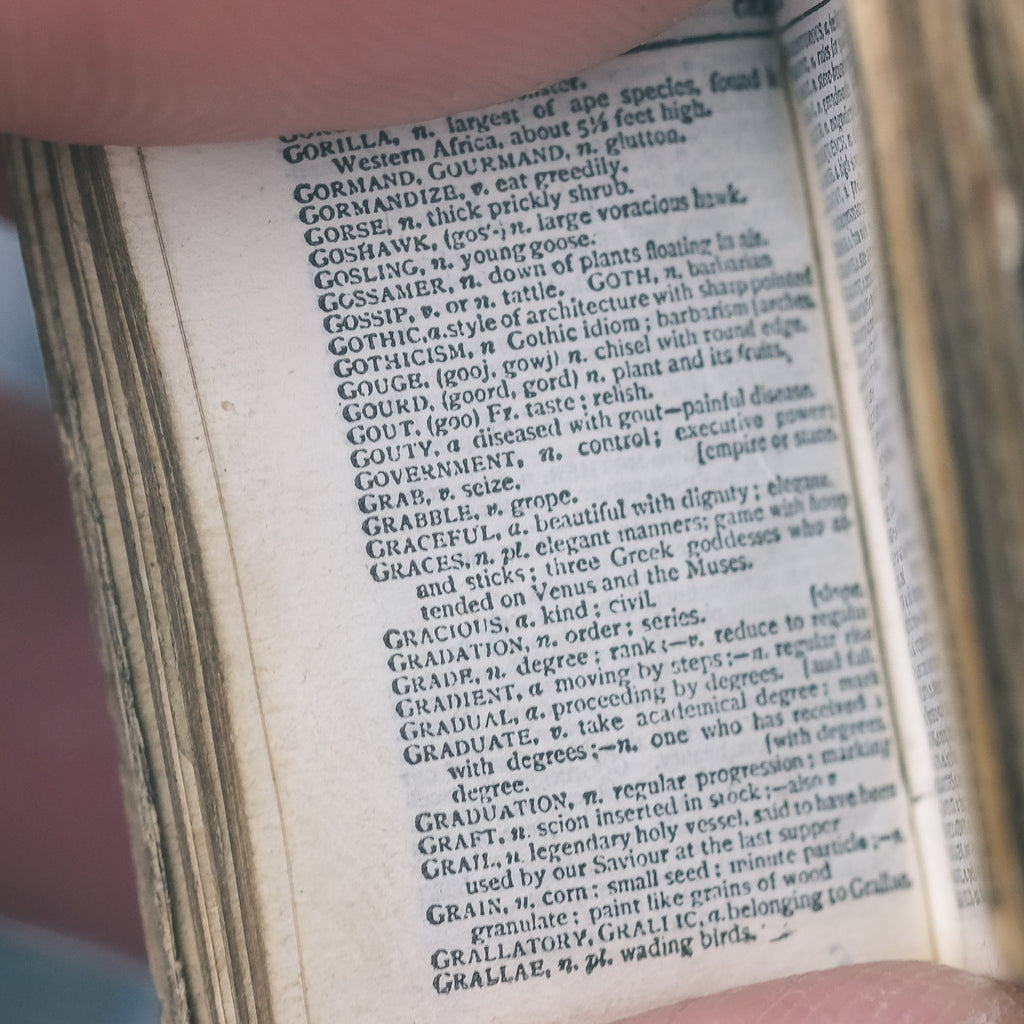 GORILLA, n. largest of ape species, found
Western Africa, about 5½ feet high.
GORMAND, GOURMAND, n. glutton.
GORMANDIZE, v. eat greedily.
GORSE, n. thick prickly shrub.
GOSHAWK, (gos'-) n. large voracious hawk.
GOSLING, n. young goose.
GOSSAMER, n. down of plants floating in air.
GOSSIP, v. or n. tattle. GOTH, n. barbarian
GOTHIC, a. style of architecture with sharp pointed
GOTHICISM, n Gothic idiom; barbarism [arches.
GOUGE, (gooj, gowj) n. chisel with round edge.
GOURD, (goord, gord) n. plant and its fruits,
GOUT, (goo) Fr. taste; relish.
GOUTY, a diseased with gout—painful disease.
GOVERNMENT, n. control; executive power;
[empire or state.
GRAB, v. seize.
GRABBLE, v. grope.
GRACEFUL, a. beautiful with dignity; elegant.
GRACES, n. pl. elegant manners; game with hoop
and sticks; three Greek goddesses who at-
tended on Venus and the Muses.
GRACIOUS, a. kind; civil.
GRADATION, n. order; series. [slope.
GRADE, n. degree; rank:—v. reduce to regular
GRADIENT, a moving by steps:—n. regular rise
GRADUAL, a. proceeding by degrees. [and fall.
GRADUATE, v. take academical degree; mark
with degrees;—n. one who has received a
degree. [with degrees.
GRADUATION, n. regular progression; marking
GRAFT, n. scion inserted in stock;—also v
GRAIL, n legendary holy vessel, said to have been
used by our Saviour at the last supper
GRAIN, n. corn; small seed; minute particle;—v.
granulate; paint like grains of wood
GRALLATORY, GRALLIC, a. belonging to Grallae.
GRALLAE, n. pl. wading birds.